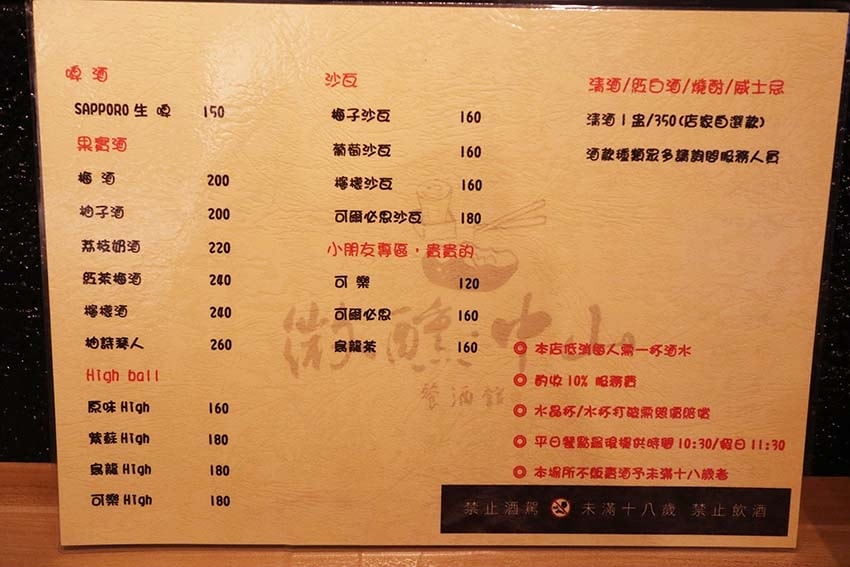 啤酒
SAPPORO生啤 150
果實酒
梅酒 200
柚子酒 200
荔枝奶酒 220
紅茶梅酒 240
檸檬酒 240
柚詩琴人 260
High ball
原味High 160
紫蘇High 180
烏龍High 180
可樂High 180
沙瓦
梅子沙瓦 160
葡萄沙瓦 160
檸檬沙瓦 160
可爾必思沙瓦 180
小朋友專區，貴貴的
可樂 120
可爾必思 160
烏龍茶 160
清酒/紅白酒/燒酎/威士忌
清酒1盅/350(店家自選款)
酒款種類眾多請詢問服務人員
微醺中山
餐酒館
◎ 本店低消每人需一杯酒水
◎ 酌收10%服務費
◎ 水晶杯/水杯打破需照價賠償
◎ 平日餐點最後提供時間10:30/假日11:30
◎ 本場所不販賣酒予未滿十八歲者
禁止酒駕 未滿十八歲 禁止飲酒